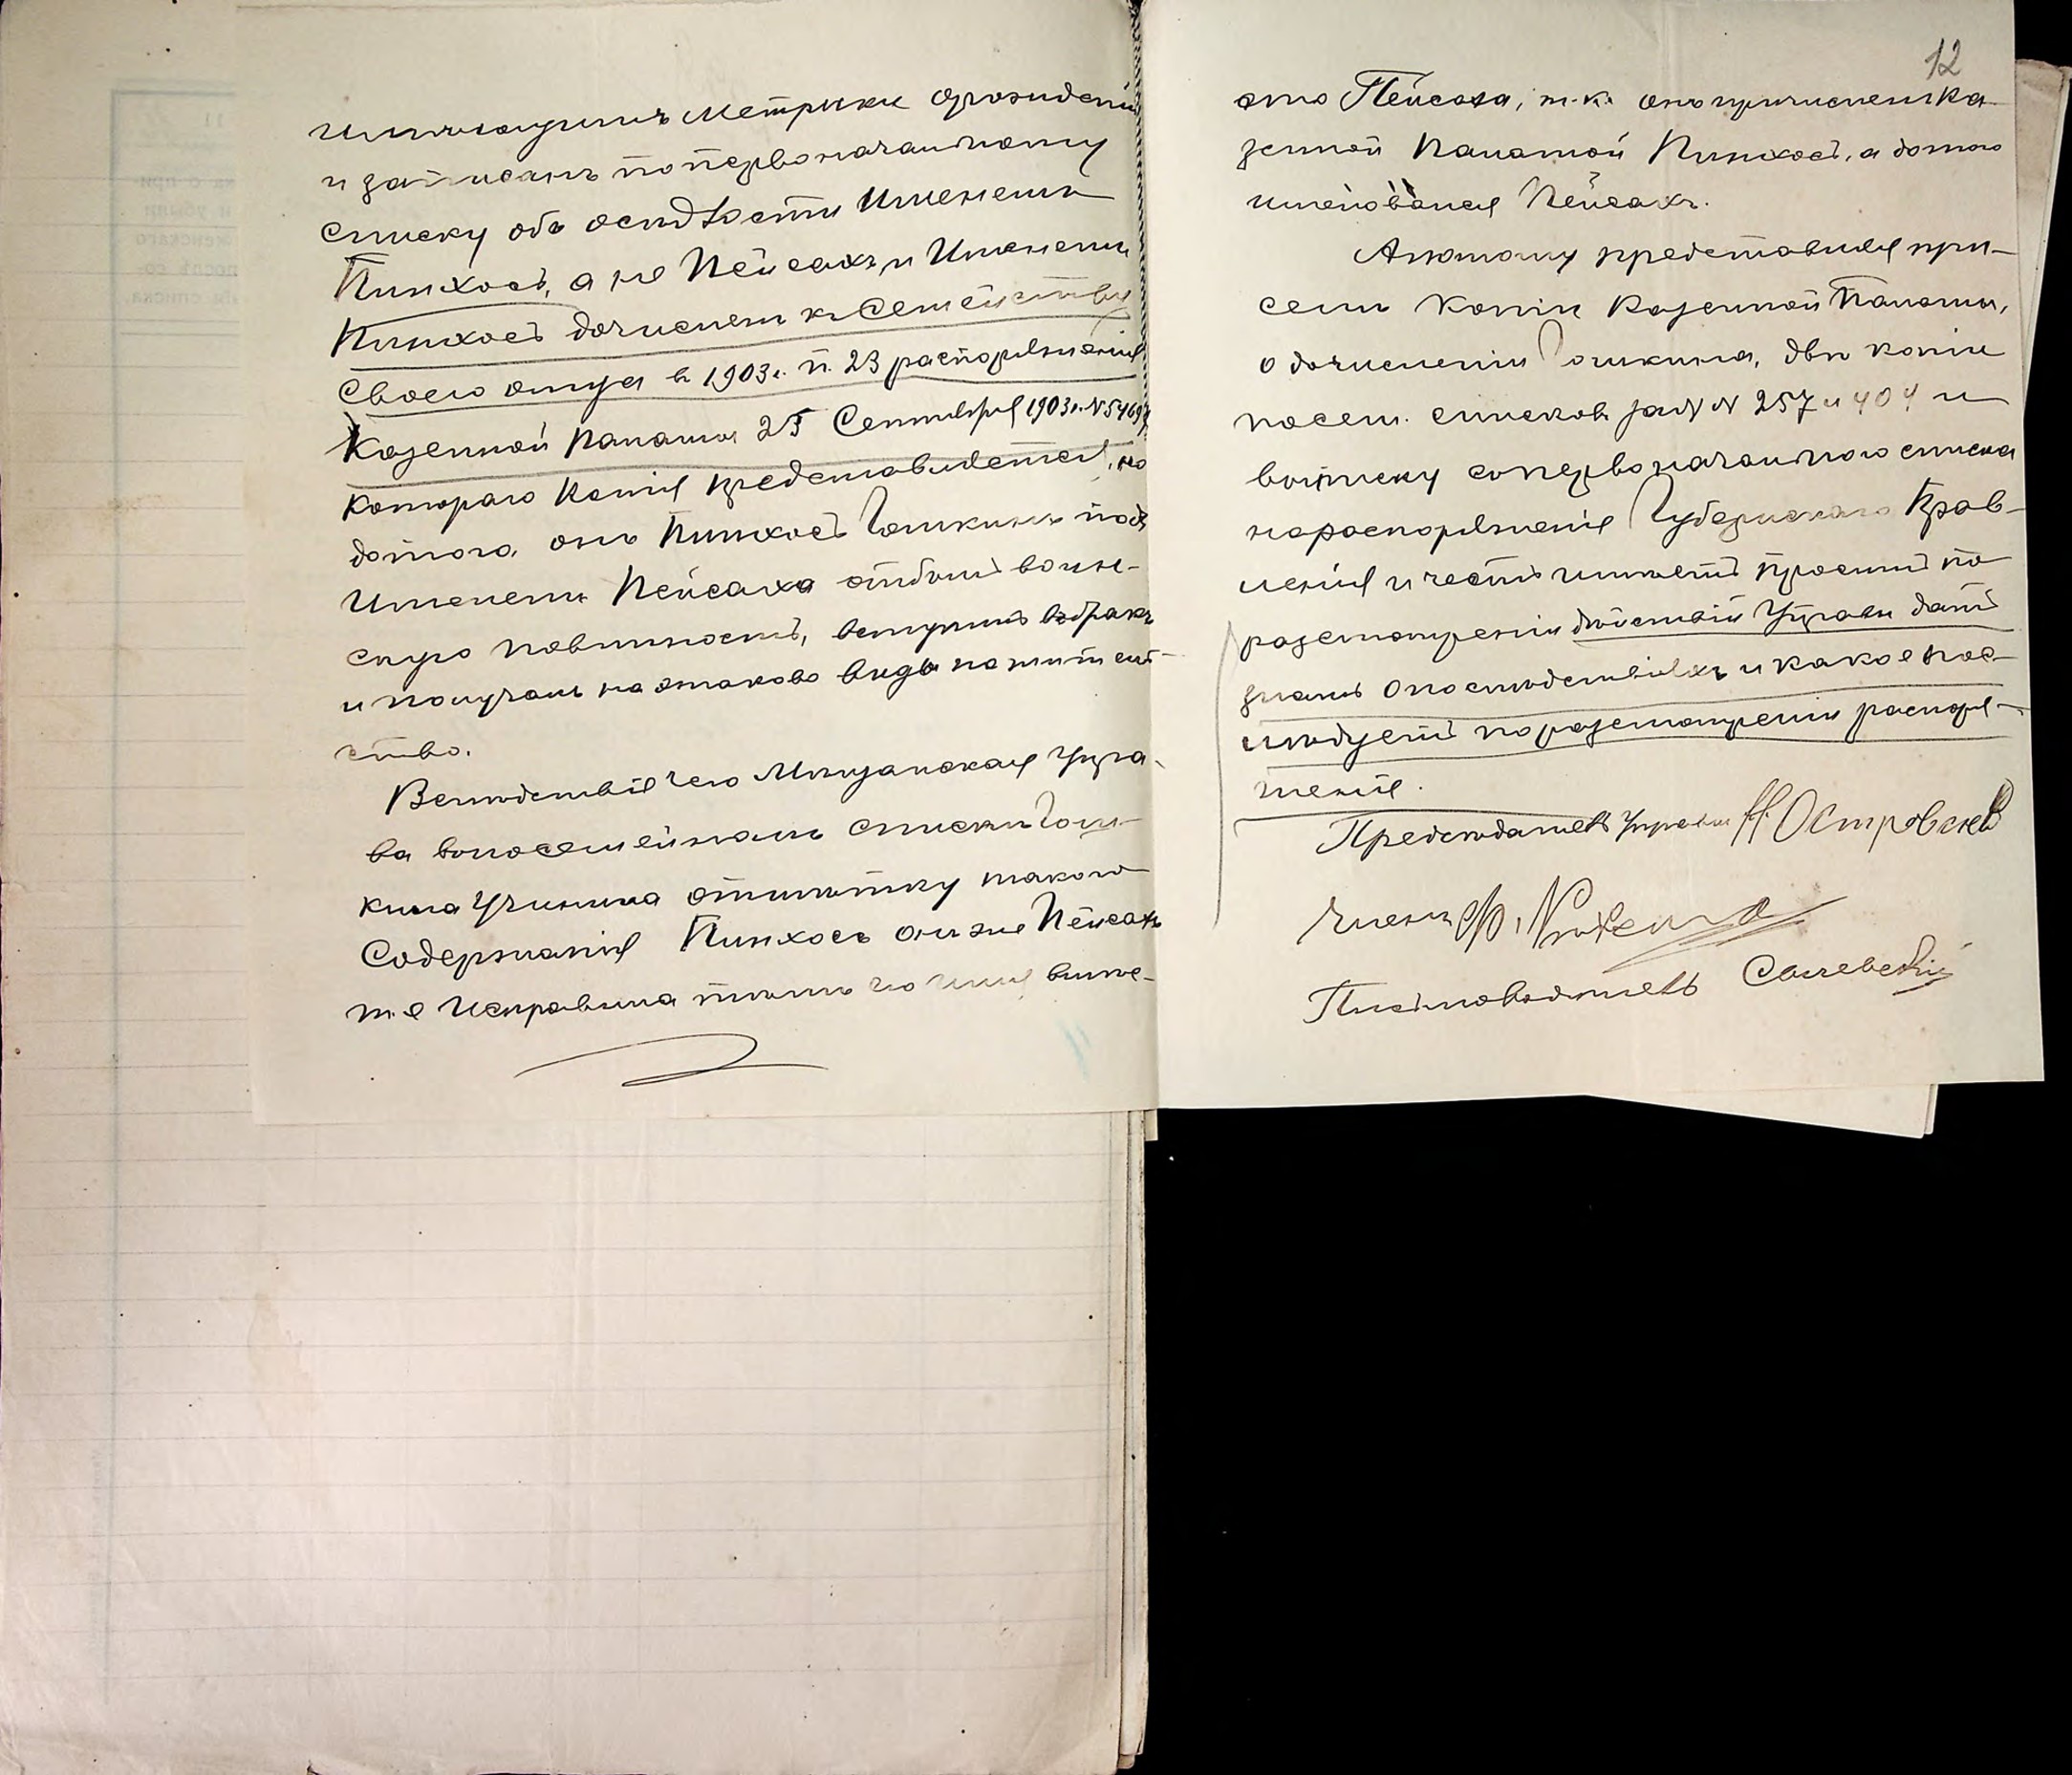 имѣющимъ метрики орожиденіи
и записанъ по первоначальному
списку объ осѣдлости Именемъ
Пинхосъ, а не Пейсахъ, и Именемъ
Пинхосъ дочисленъ къ Семейству
Своего отца в 1903 г. п. 23 распоряженія
Казенной Палаты 25 Сентября 1903 г. N 5469
котораго копія представляется, но
до того, онъ Пинхосъ Гошкинъ подъ
Именемъ Пейсаха отбылъ воин-
скую повинность, вступилъ въ бракъ
и получалъ на этаково виды на житель-
ство.
Вслѣдствіе чего Мѣщанская Упра-
ва въ посемейномъ списки Гош-
кина Учинила отмѣтку такого
Содержанія Пинхосъ онъ же Пейсахъ
т.е Исправила тѣмъ его имя вмѣс-
12
это Пейсаха, т.к. онъ причисленъ Ка-
зенной Палатой Пинхосъ, а до того
именовался Пейсахъ.
А потому представляя при-
семъ копіи Казенной Палаты,
о дочисленіи Гошкина, двѣ копіи
посем. списковъ за N N 257 и 404 и
выписку съ первоначальнаго списка
на распоряженіе Губернскаго Прав-
ленія и честь имѣетъ проситъ по
разсмотреніи дѣйствій Управы дать
знать о послѣдствіяхъ и какое пос-
лѣдуетъ по разсмотреніи распоря-
женіе.
Предсѣдатель Управы Н. Островскій
Членъ
Письмоводитель